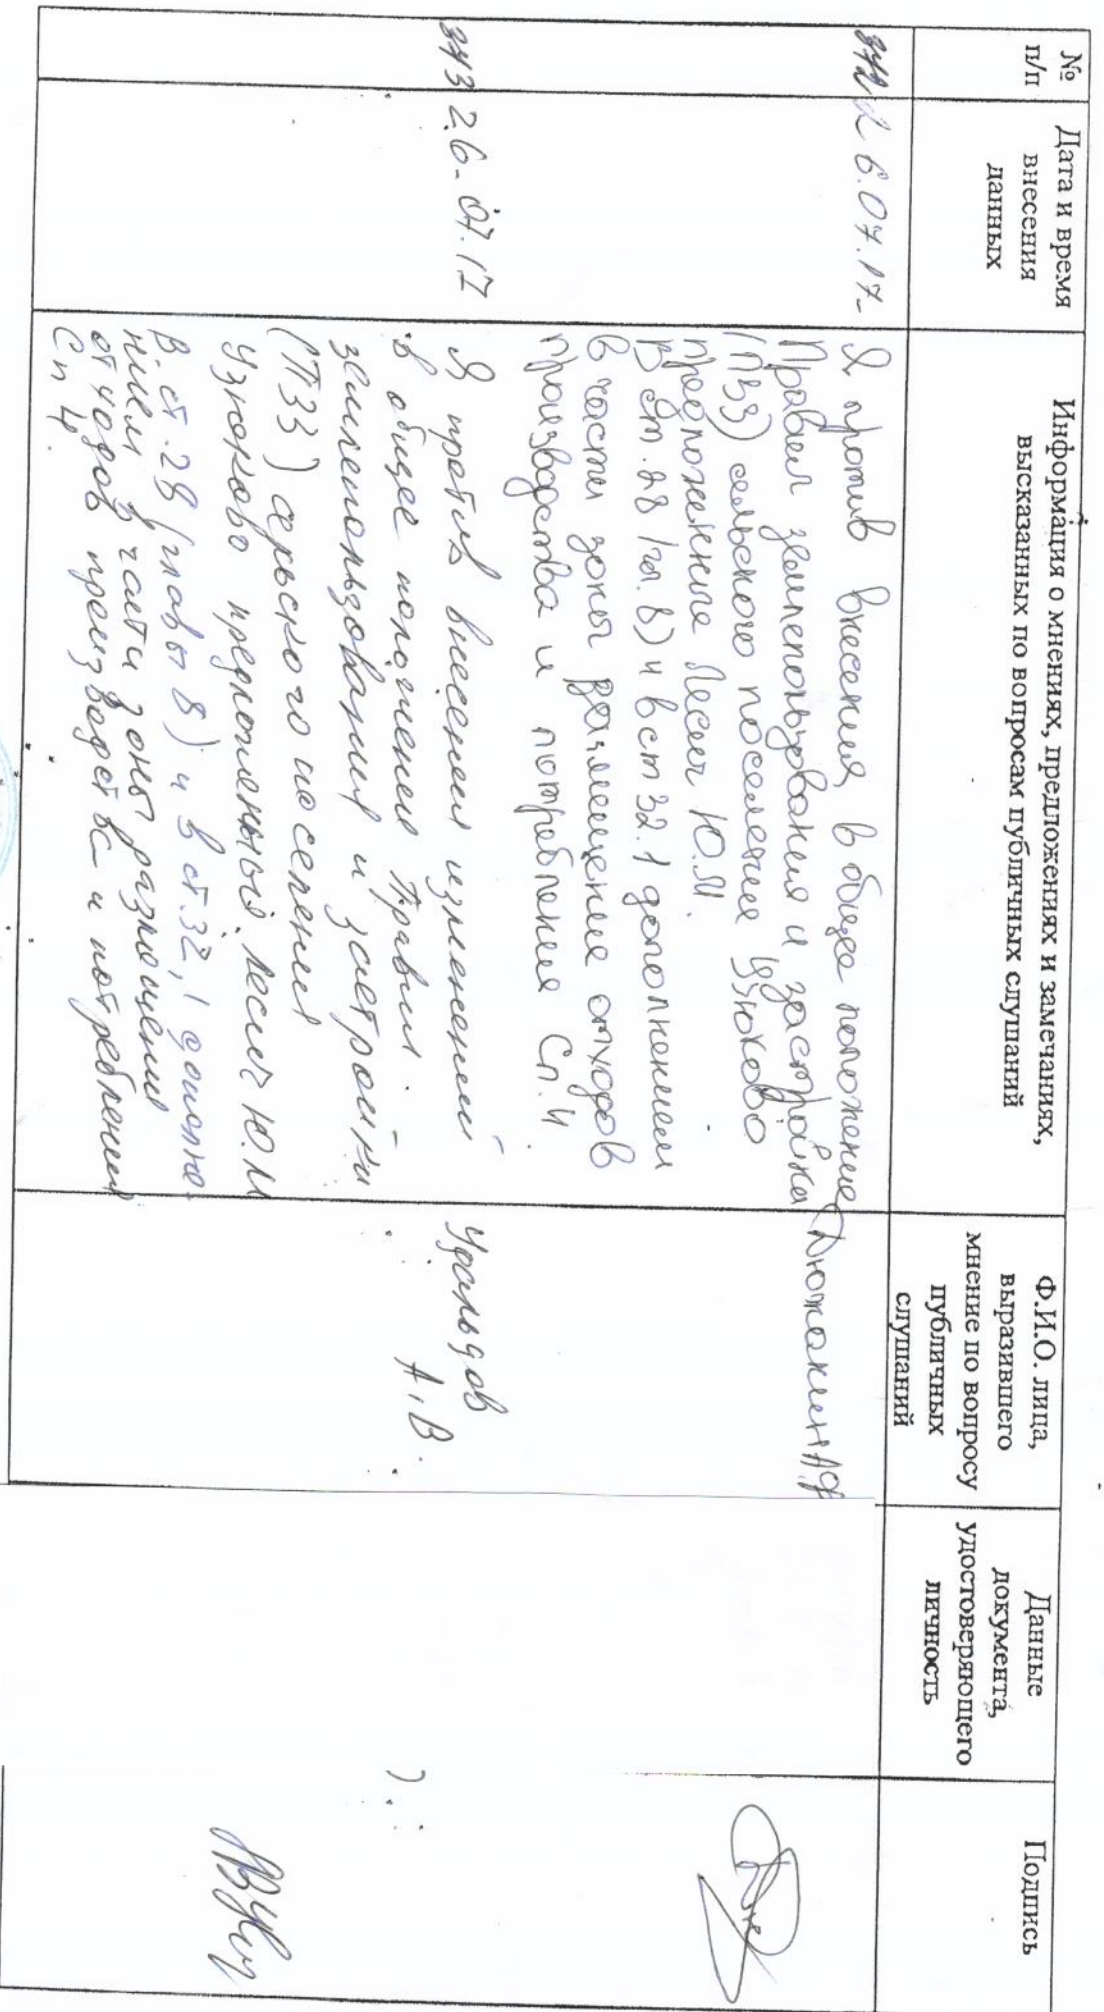 №
п/п
Дата и время
внесения
данных
Информация о мнениях, предложениях и замечаниях,
высказанных по вопросам публичных слушаний
Ф.И.О. лица,
выразившего
мнение по вопросу
публичных
слушаний
Данные
документа,
удостоверяющего
личность
Подпись
26.07.17
Я против внесения в общее положение
Правил землепользования и застройки
(ПЗЗ) сельского поселения Узюково
предложенные Лесик Ю.М.
В ст. 28 (гл. 8) и в ст 32.1 дополнением
в части зоны размещение отходов
производства и потребления Сп.4.
343
26-07.17
Я против внесения изменений
в общее положении Правил
землепользования и застройки
(ПЗЗ) сельского поселения
Узюково предложенный Лесик Ю.М
В ст. 28 (главы 8) и в ст. 32,1 дополне-
нием в части зоны размещения
отходов производства и потребления
Сп 4.
Удальцов
А.В.